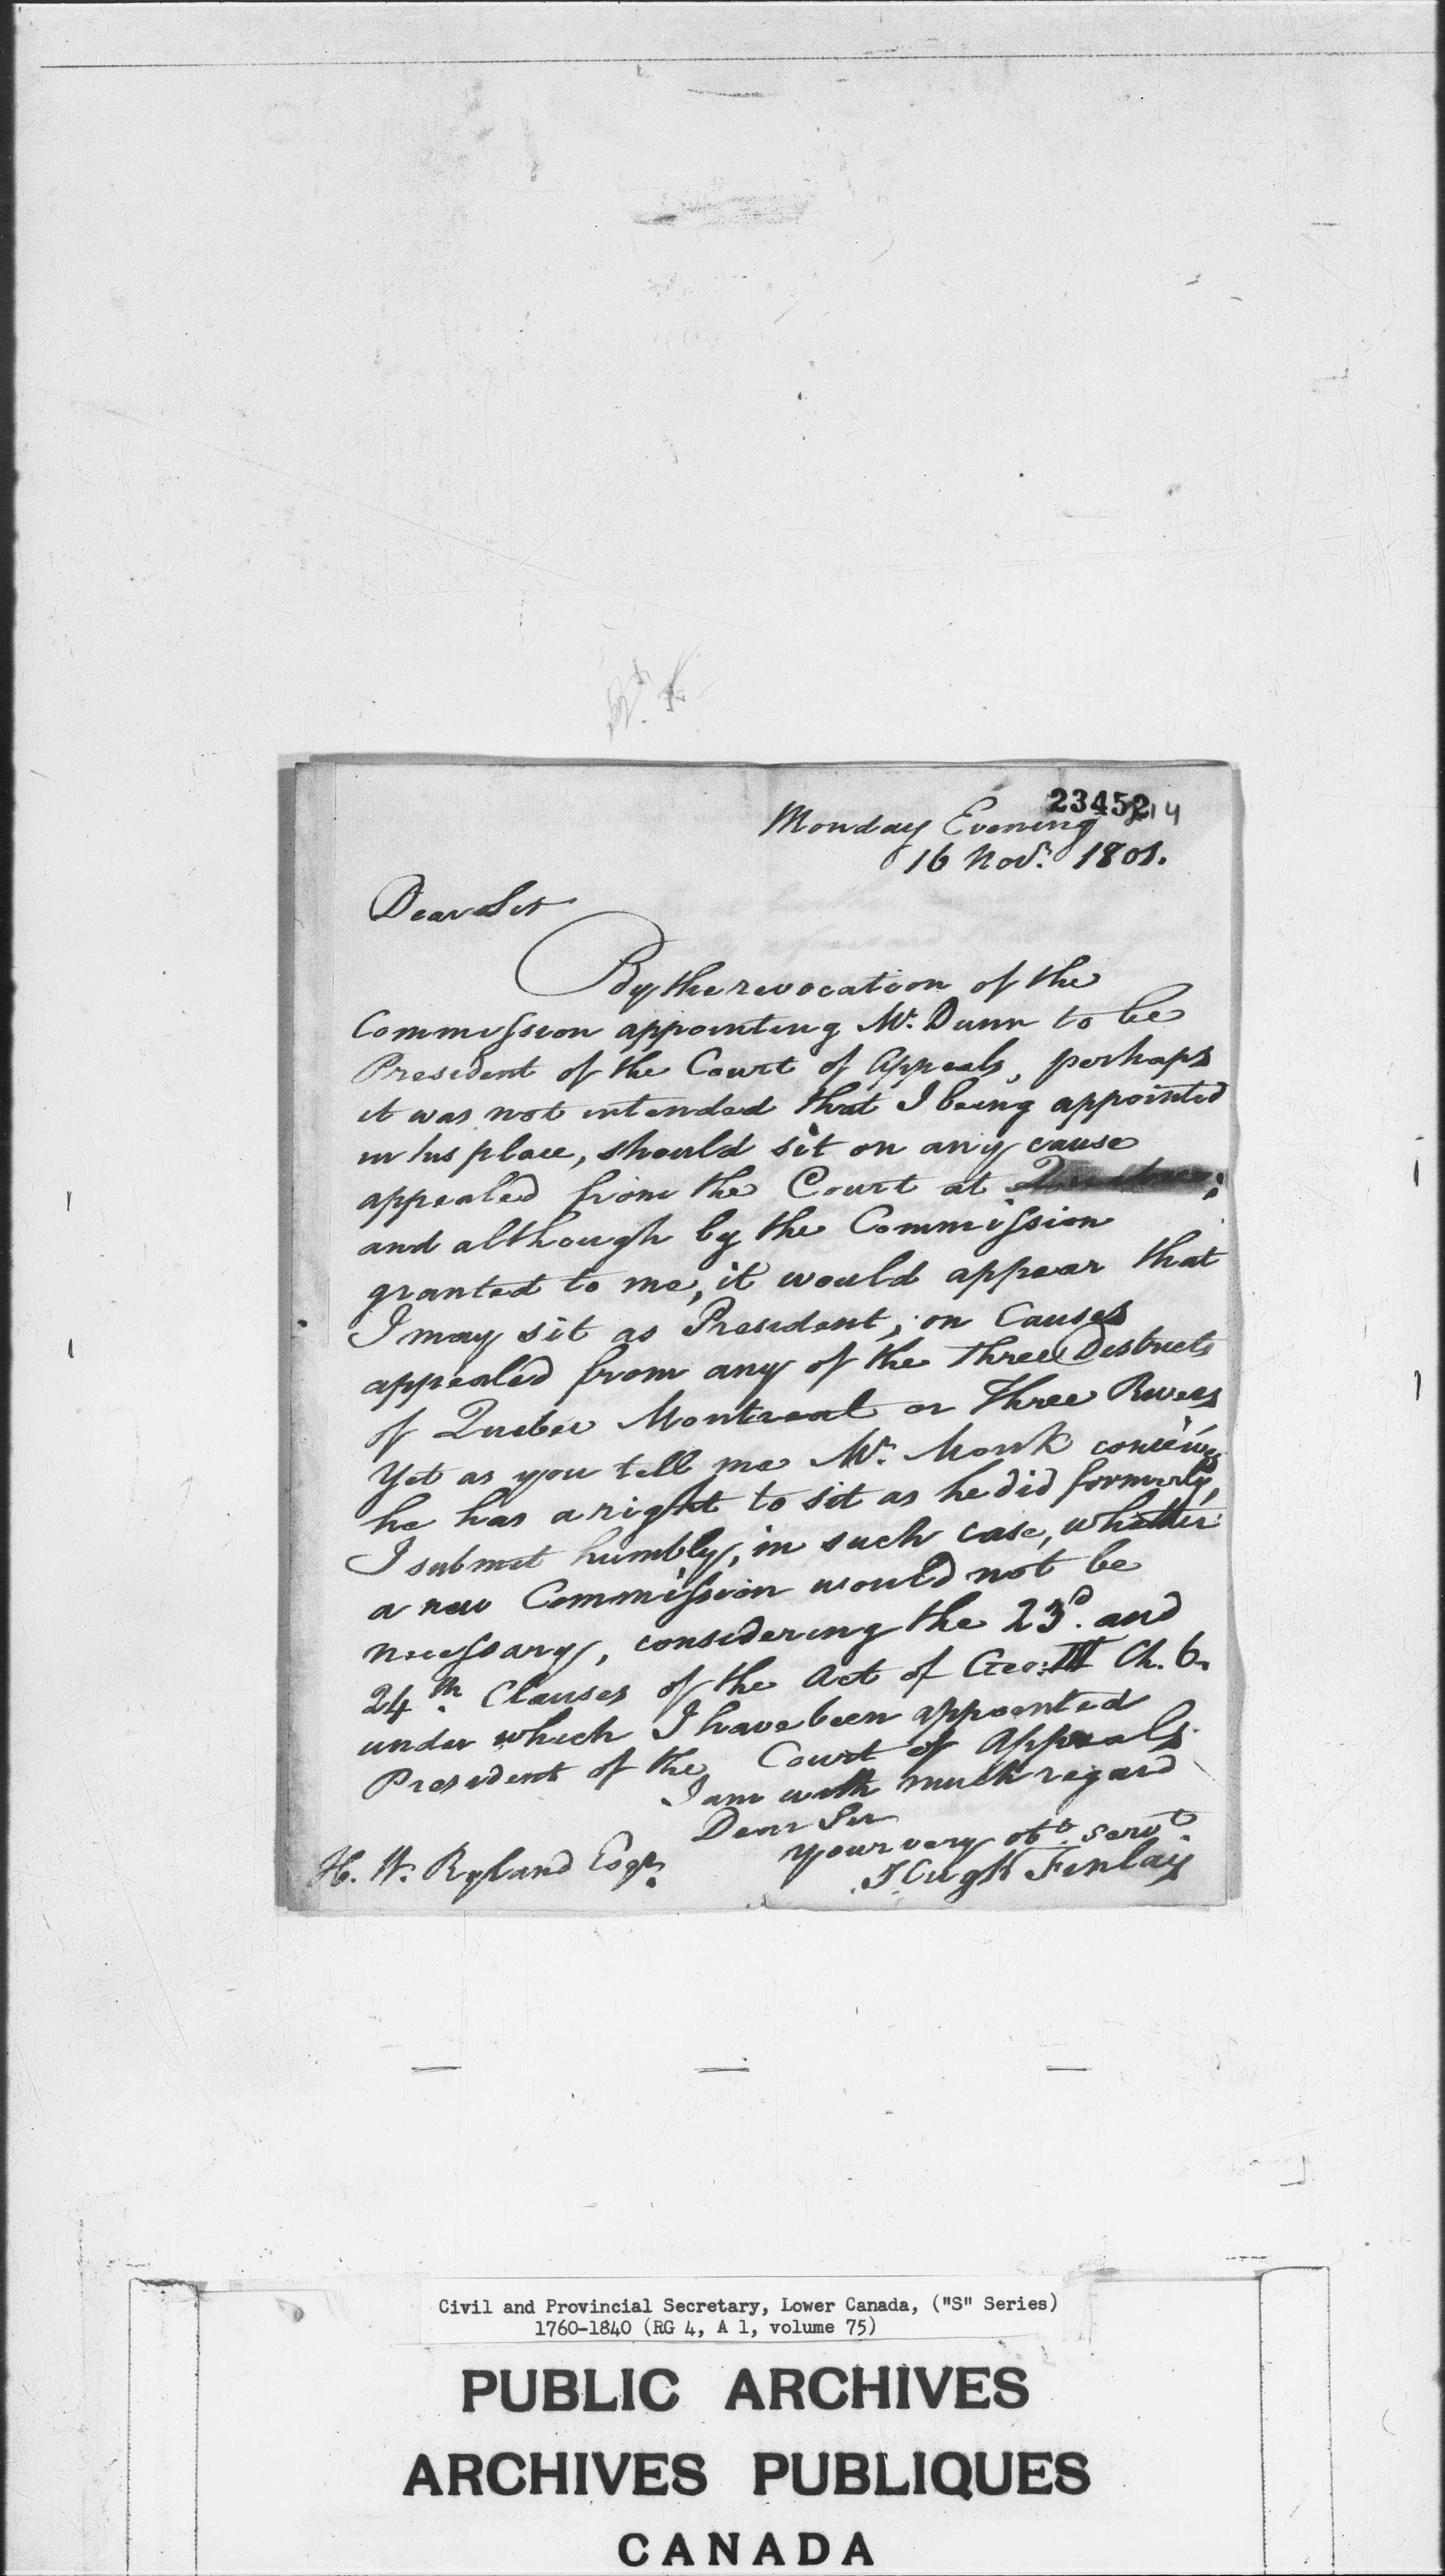 23452
Monday Evening
16 Novr. 1801.
Dear Sir
By the revocation of the
Commission appointing Mr. Dunn to be
President of the Court of Appeals, perhaps
it was not intended that I being appointed
in his place, should sit on any cause
appealed from the Court at
and although by the Commission
granted to me, it would appear that
I may sit as President, on Causes
appealed from any of the three Districts
of Quebec Montreal or Three Rivers
Yet as you tell me Mr. Monk conceives
he has a right to sit as he did formerly,
I submit humbly, in such case, whether
a new Commission would not be
necessary, considering the 23d. and
24th. Clauses of the Act of Geo: III Ch. 6.
under which I have been appointed
President of the Court of Appeals.
I am with much regard
Dear Sir
your very obt. servt.
Hugh Finlay
H. W. Ryland Esqr.
Civil and Provincial Secretary, Lower Canada, ("S" Series)
1760-1840 (RG 4, A 1, volume 75)
PUBLIC ARCHIVES
ARCHIVES PUBLIQUES
CANADA